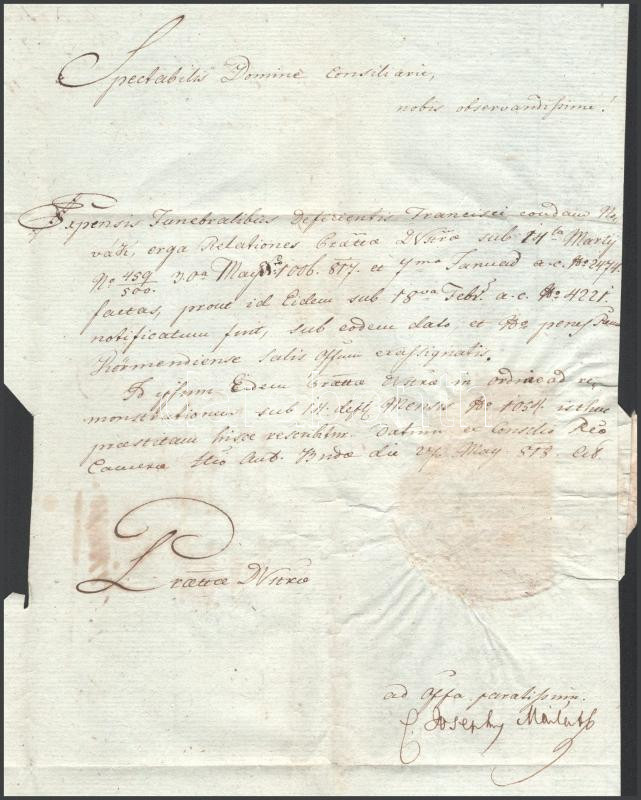 Spectabilis Domine Consiliarie,
nobis observandissime!
Expensis Funebralibus Deferentis Francisci condam
erga Relationes Prættæ DVstræ sub 14ta Marty
No 459/560. 30a May No 1006. 817. et Januar a. c. No 2474.
factas, prout id Eidem sub 18va Febr. a. c. No 4221.
notificatum fuit, sub eodem dato et No penes
Körmendiense Salis Offum exassignatis.
Id ipsum Eidem Prættæ DVstræ in ordine ad re,
monstrationem sub 14. Mensis No 1054. isthuc
præstitam hisce rescribitur. Datum ex Consilio
Cameræ Budæ die 27 May 818. Cel.
Prættæ DVstræ
ad Offa paratissimus.
C. Josephus Mailáth